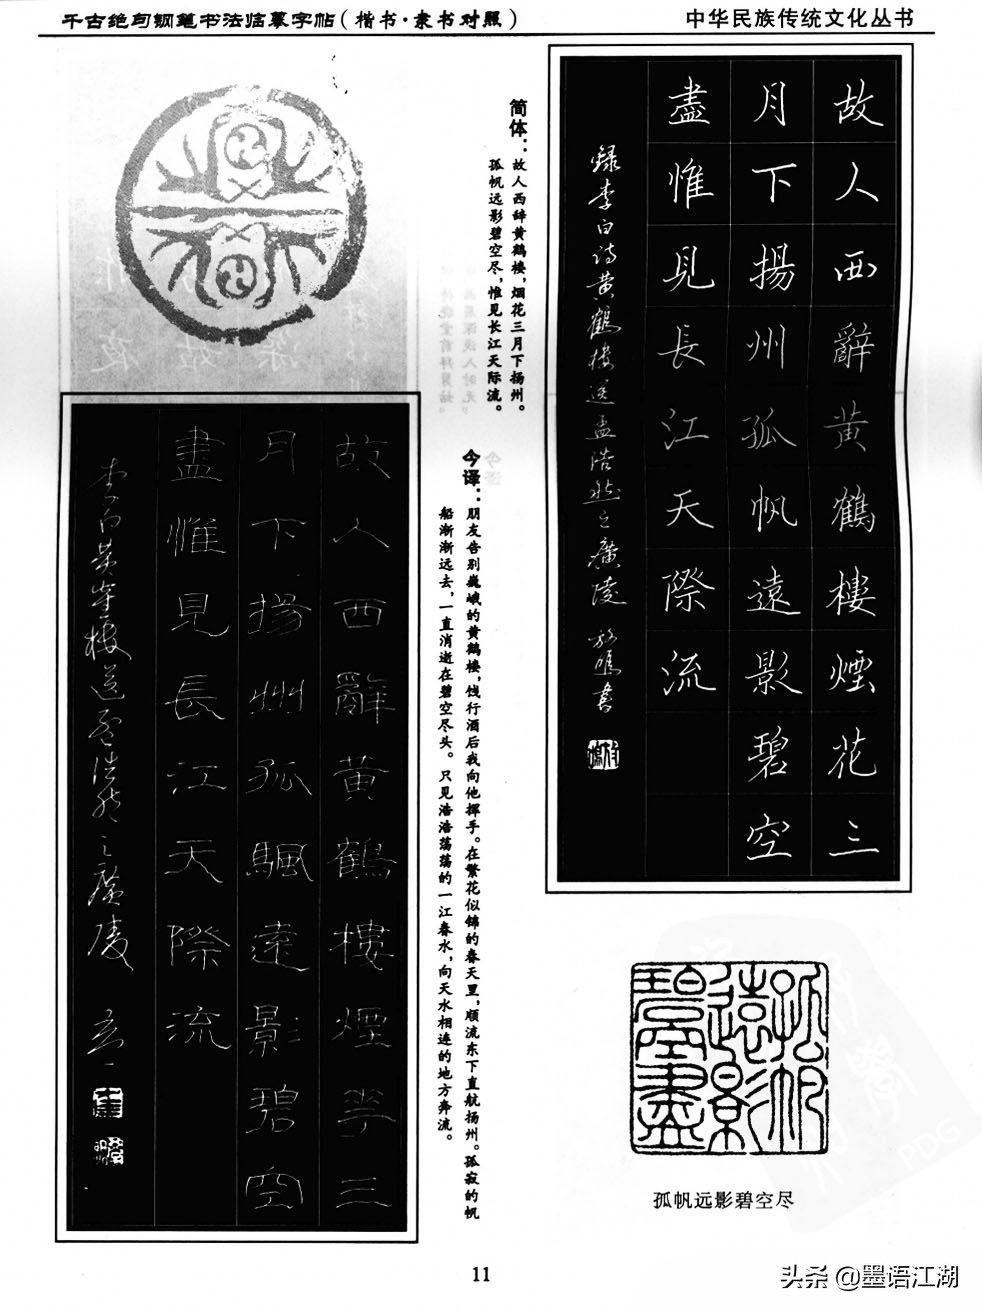 千古绝句钢笔书法临摹字帖(楷书·隶书对照)
中华民族传统文化丛书
故人西辭黄鶴樓煙花三
月下揚州孤帆遠影碧空
盡惟見長江天際流
錄李白詩黄鶴樓送孟浩然之廣陵
簡体：故人西辞黄鹤楼，烟花三月下扬州。
孤帆远影碧空尽，惟见长江天际流。
今译：朋友告别巍峨的黄鹤楼，饯行酒后我向他挥手。在繁花似锦的春天里，顺流东下直航扬州。孤寂的帆
船渐渐远去，一直消逝在碧空尽头。只见浩浩荡荡的一江春水，向天水相连的地方奔流。
故人西辭黄鶴樓煙花三
月下揚州孤颿遠影碧空
盡惟見長江天際流
李白黄鶴樓送孟浩然之廣陵
孤帆遠影碧空盡
孤帆远影碧空尽
11
PDG
头条 @墨语江湖